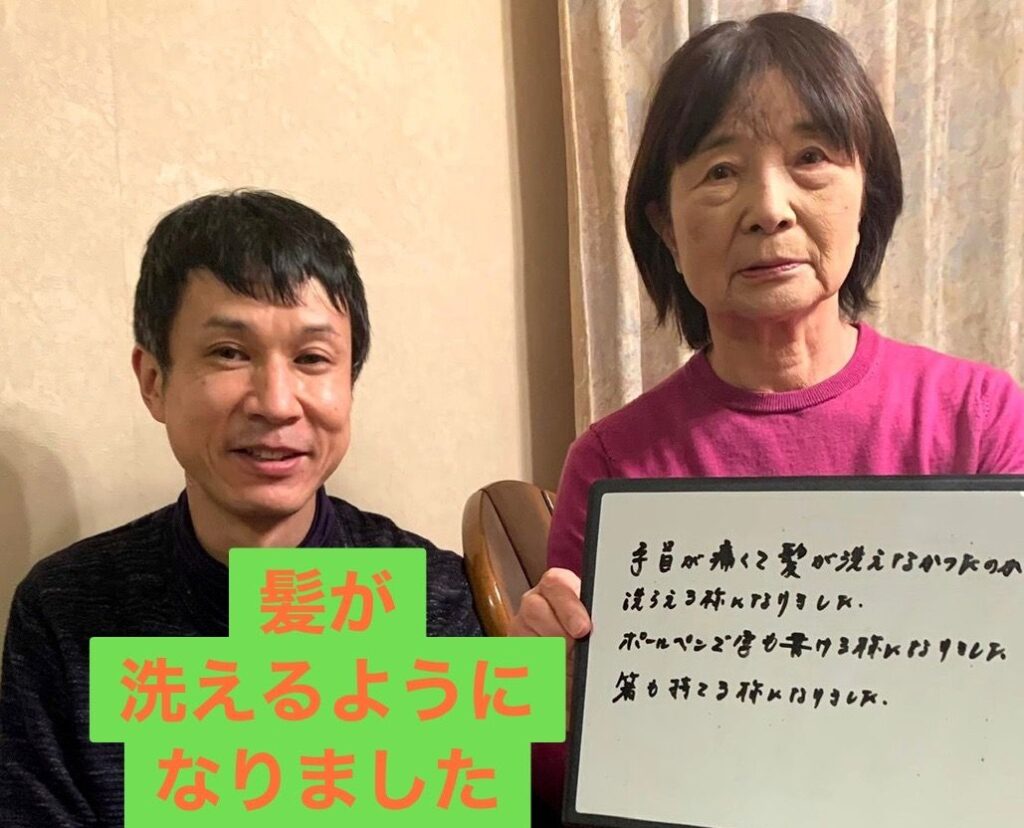 髪が
洗えるように
なりました
手首が痛くて髪が洗えなかったのが
洗らえる様になりました。
ボールペンで字も書ける様になりました
箸も持てる様になりました.